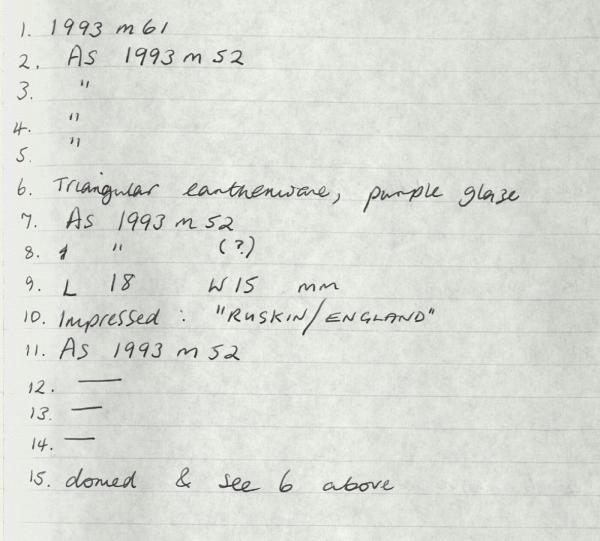 1. 1993 m 61
2. As 1993 m 52
3. "
4. "
5. "
6. Triangular earthenware, purple glaze
7. As 1993 m 52
8. 1 " (?)
9. L 18 W 15 mm
10. Impressed : "RUSKIN/ENGLAND"
11. As 1993 m 52
12. —
13. —
14. —
15. domed & see 6 above